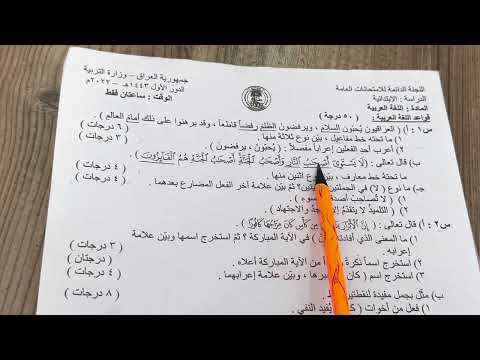 جمهورية العراق - وزارة التربية
الدور الأول ١٤٤٣هـ - ٢٠٢٢م
الوقت : ساعتان فقط
اللجنة الدائمة للامتحانات العامة
الدراسة : الابتدائية
المادة : اللغة العربية
قواعد اللغة العربية : ( ٥٠ درجة )
س١ : أ ) العراقيون يُحبّون السلام ، ويرفضون الظلم رفضاً قاطعاً ، وقد برهنوا على ذلك أمام العالم .
ما تحته خط مفاعيل ، بيّن نوع ثلاثة منها ( ٦ درجات )
٢) أعرب أحد الفعلين إعراباً مفصلاً : ( يُحبّون ، يرفضون ) . ( ٣ درجات )
ب) قال تعالى : ( لَا يَسْتَوِي أَصْحَابُ النَّارِ وَأَصْحَابُ الْجَنَّةِ أَصْحَابُ الْجَنَّةِ هُمُ الْفَائِزُونَ )
ما تحته خط معارف ، بيّن نوع اثنين منها . ( ٤ درجات )
جـ) ما نوع ( لا ) في الجملتين ثمّ بيّن علامة آخر الفعل المضارع بعدهما . ( ٤ درجات )
١ ) لا تُصاحِبْ أصدقاء السوء .
٢ ) التلميذ لا يتقدّمُ إلا والاجتهاد .
س٢ : أ ) قال تعالى : ( إِنَّ الْأَبْرَارَ يَشْرَبُونَ مِن كَأْسٍ كَانَ مِزَاجُهَا كَافُورًا )
١ ) ما المعنى الذي أفادته في الآية المباركة ؟ ثمّ استخرج اسمها وبيّن علامة إعرابه . ( ٣ درجات )
٢) استخرج اسماً نكرةً من الآية المباركة أعلاه . ( درجتان )
٣) استخرج اسم ( كان ) ، وبيّن علامة إعرابهما . ( ٤ درجات )
ب) مثّل بجمل مفيدة لنقطتين ( ٨ درجات )
١ ) فعل من أخوات ( يُفيد النفي .